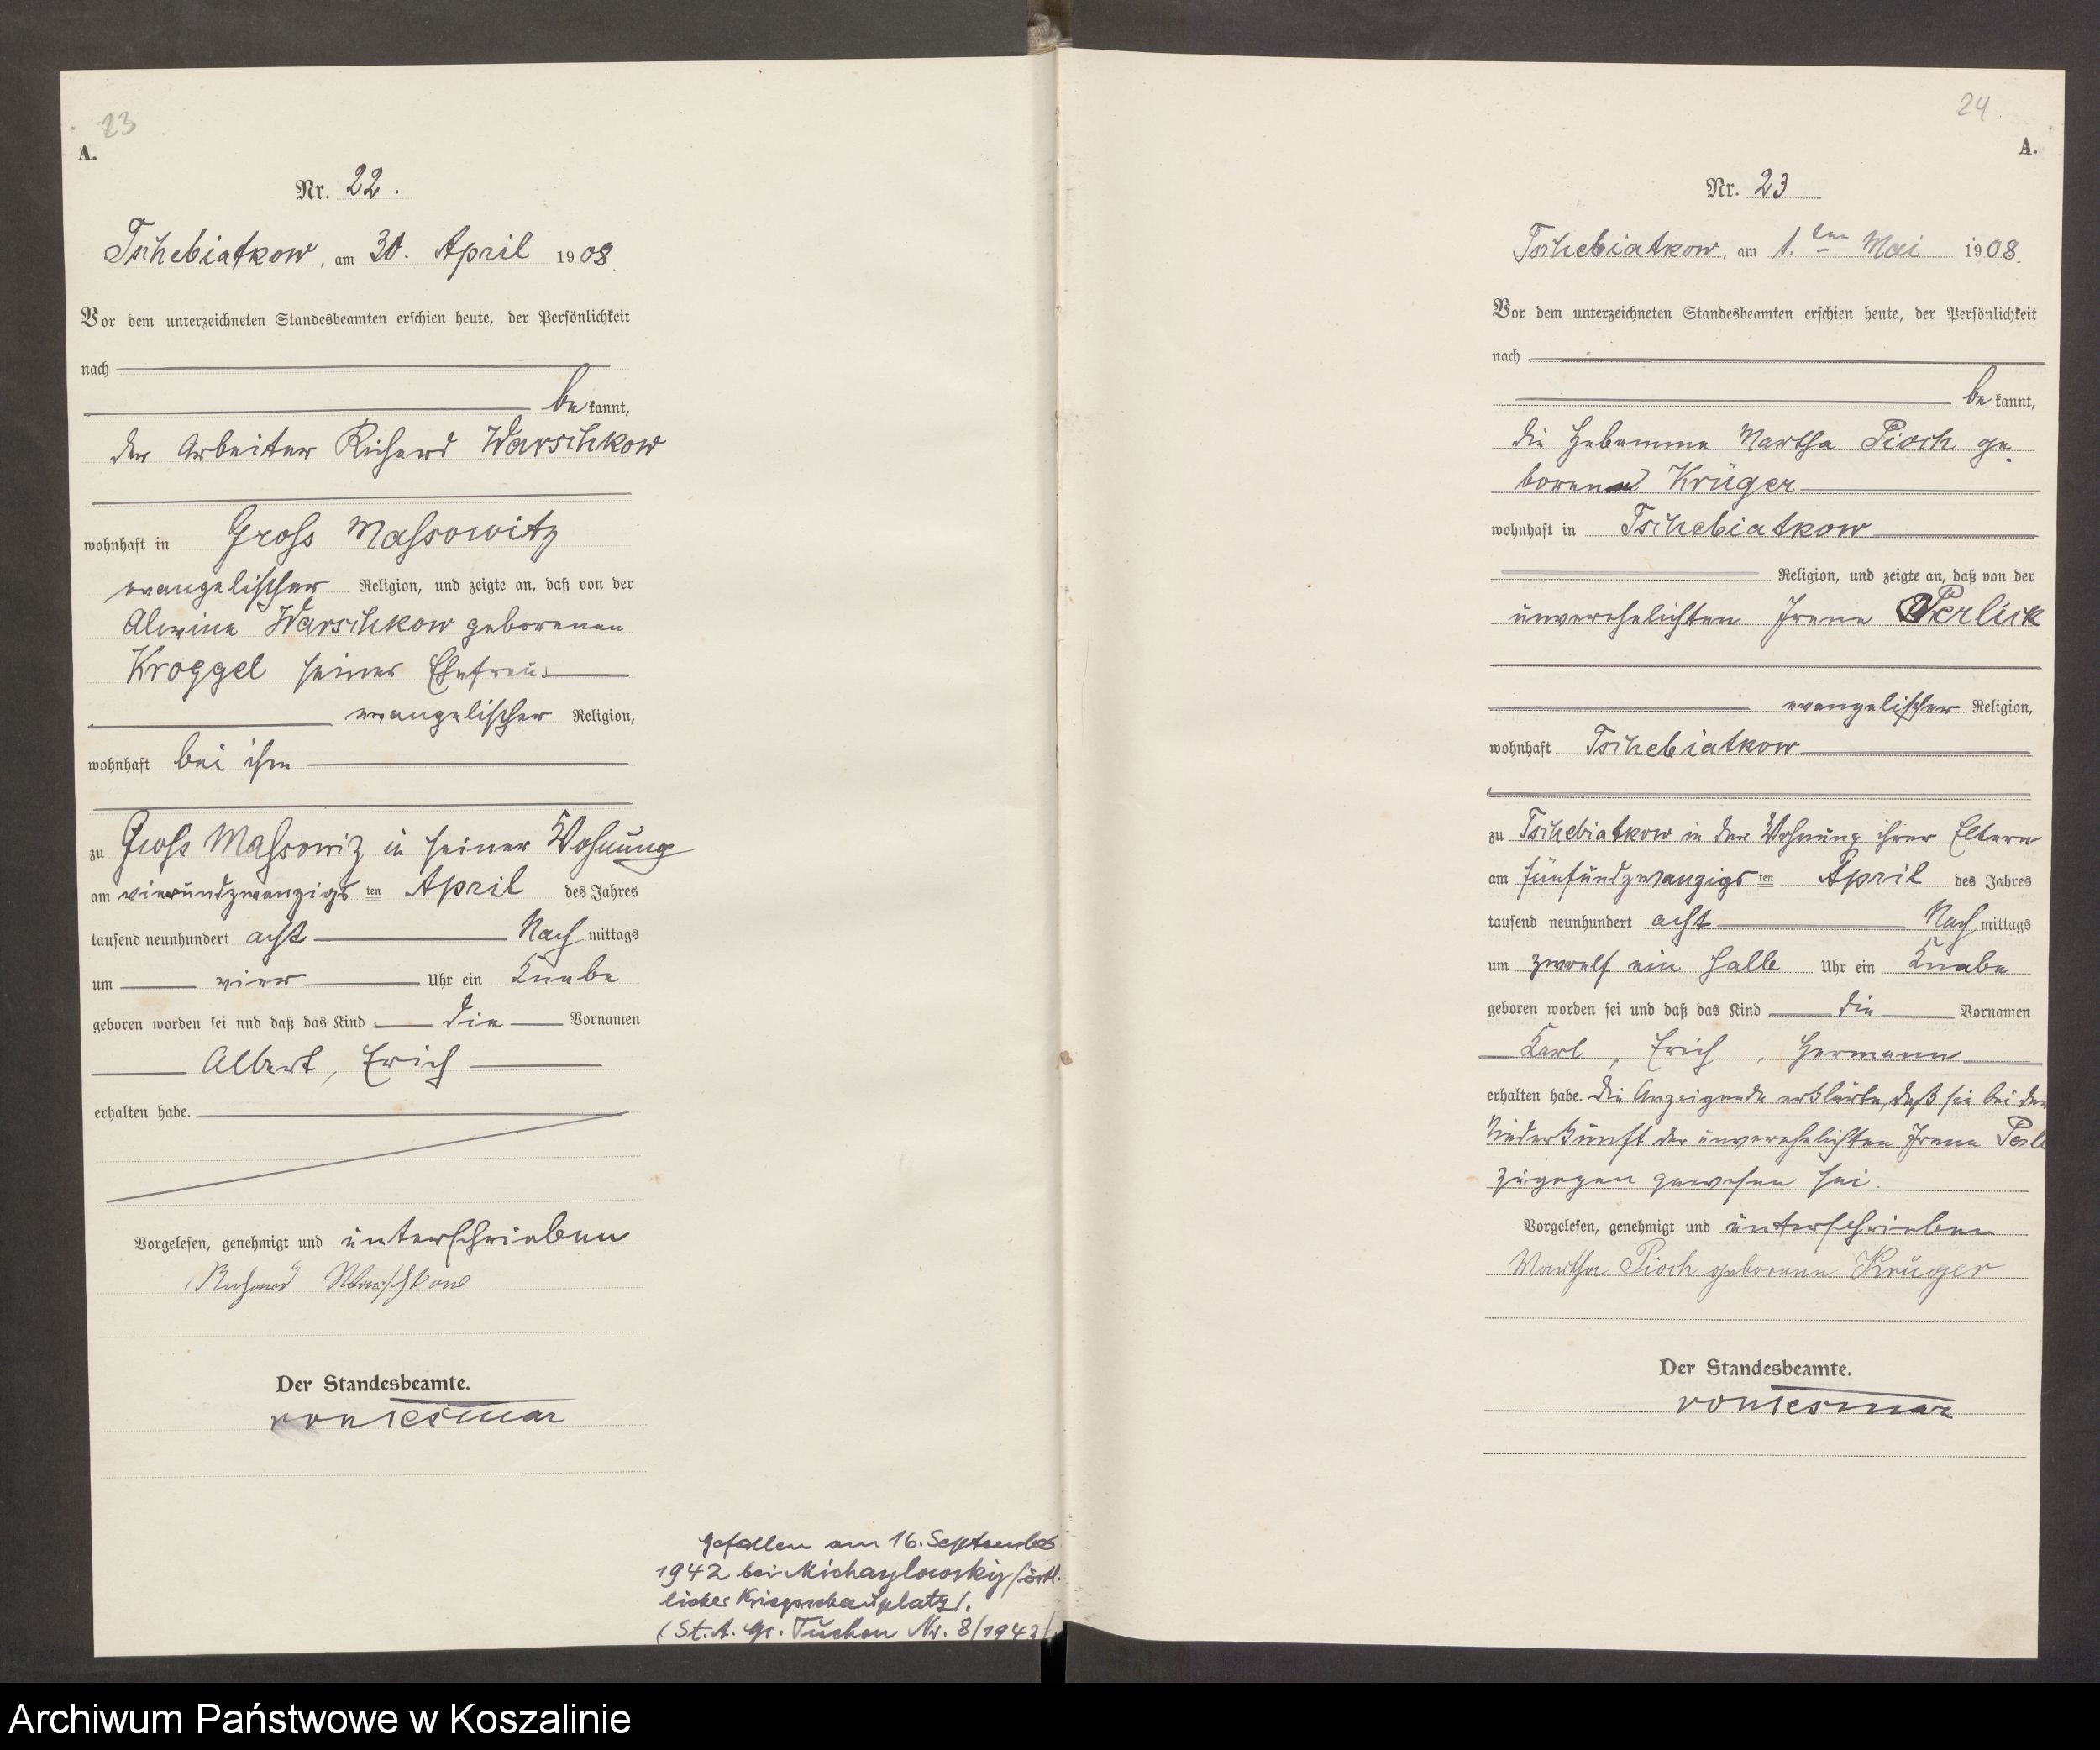 23
A.
Nr. 22.
Tschebiatkow, am 30. April 1908.
Vor dem unterzeichneten Standesbeamten erschien heute, der Persönlichkeit
nach
bekannt,
der Arbeiter Richard Warschkow
wohnhaft in Gross Massowitz
evangelischer Religion, und zeigte an, daß von der
Alwine Warschkow geborenen
Kroggel seiner Ehefrau
evangelischer Religion,
wohnhaft bei ihm
zu Gross Massowiz in seiner Wohnung
am vierundzwanzigsten April des Jahres
tausend neunhundert acht Nachmittags
um vier Uhr ein Knabe
geboren worden sei nnd daß das Kind die Vornamen
Albert, Erich
erhalten habe.
Vorgelesen, genehmigt und unterschrieben
Richard Warschkow
Der Standesbeamte.
von Tesmar
Gefallen am 16. September
1942 bei Michaylowskij /östl.
licher Kriegsschauplatz/.
(St.A. Gr. Tuchen Nr. 8/1943/.
24
A.
Nr. 23
Tschebiatkow, am 1.ten Mai 1908.
Vor dem unterzeichneten Standesbeamten erschien heute, der Persönlichkeit
nach
bekannt,
die Hebamme Martha Pioch ge-
borene Krüger
wohnhaft in Tschebiatkow
Religion, und zeigte an, daß von der
unverehelichten Irene Perlick
evangelischer Religion,
wohnhaft Tschebiatkow
zu Tschebiatkow in der Wohnung ihrer Eltern
am fünfundzwanzigsten April des Jahres
tausend neunhundert acht Nachmittags
um zwoelf ein halb Uhr ein Knabe
geboren worden sei und daß das Kind die Vornamen
Karl, Erich, Hermann
erhalten habe. Die Anzeigende erklärte, daß sie bei der
Niederkunft der unverehelichten Irene Perl
zugegen gewesen sei.
Vorgelesen, genehmigt und unterschrieben
Martha Pioch geborene Krüger
Der Standesbeamte.
von Tesmar
Archiwum Państwowe w Koszalinie